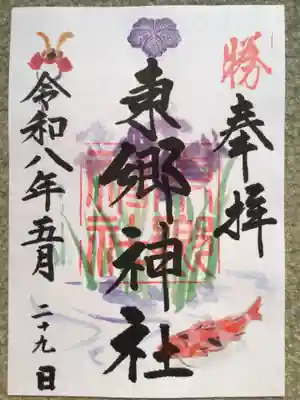 勝
奉拝
東郷神社
東郷神社
令和八年五月
二十九日